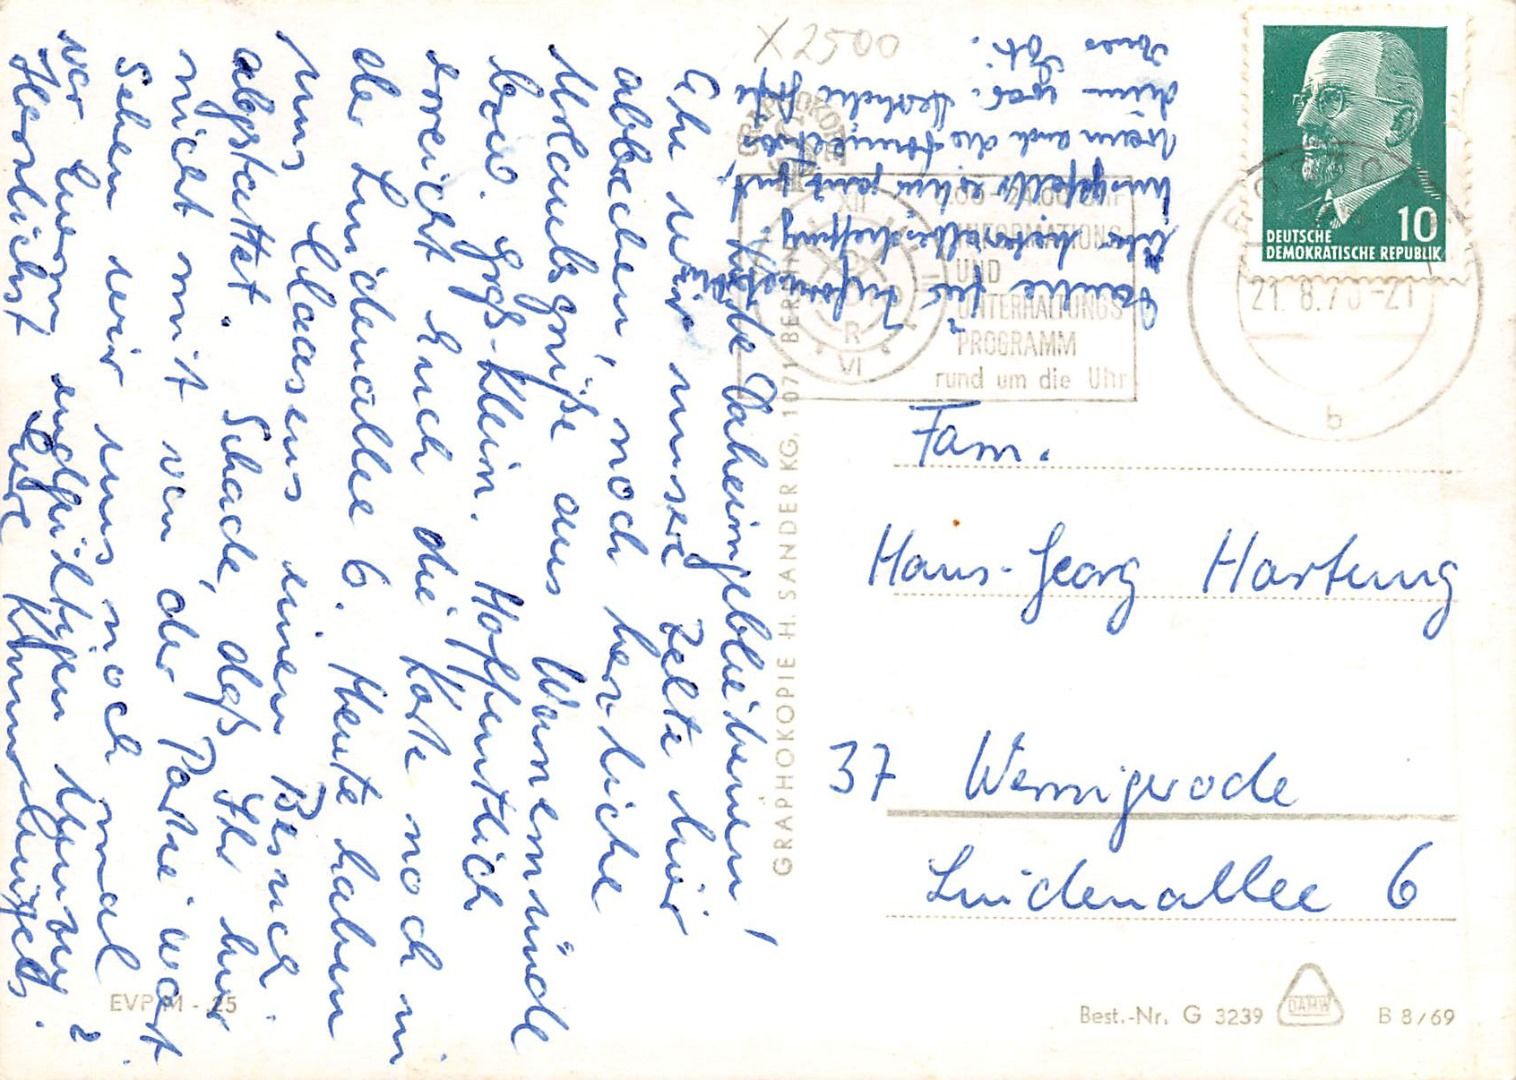 X 2500
Liebe Daheimgebliebenen!
Ehe wir unsere Zelte hier
abbrechen, noch herzliche
Urlaubsgrüße aus Warnemünde
bzw. Groß-Klein. Hoffentlich
erreicht Euch die Karte noch in
der Lindenallee 6. Heute haben
uns Claasens einen Besuch
abgestattet. Schade, daß Ihr hier
nicht mit von der Partie wart.
Sehen wir uns noch mal
vor Eurem endgültigen Umzug?
Herzlichst Eure
Danke für
Information
über
wenn auch die
dann war. Herzliche Grüße
GRAPHOKOPIE H. SANDER KG, 1071 BERLIN
EVP M -.25
XII
R
VI
INFORMATIONS
UND
UNTERHALTUNGS
PROGRAMM
rund um die Uhr
21.8.70-21
b
10
DEUTSCHE
DEMOKRATISCHE REPUBLIK
Fam.
Hans-Georg Hartung
37 Wernigerode
Lindenallee 6
Best.-Nr. G 3239 DAMW B 8/69